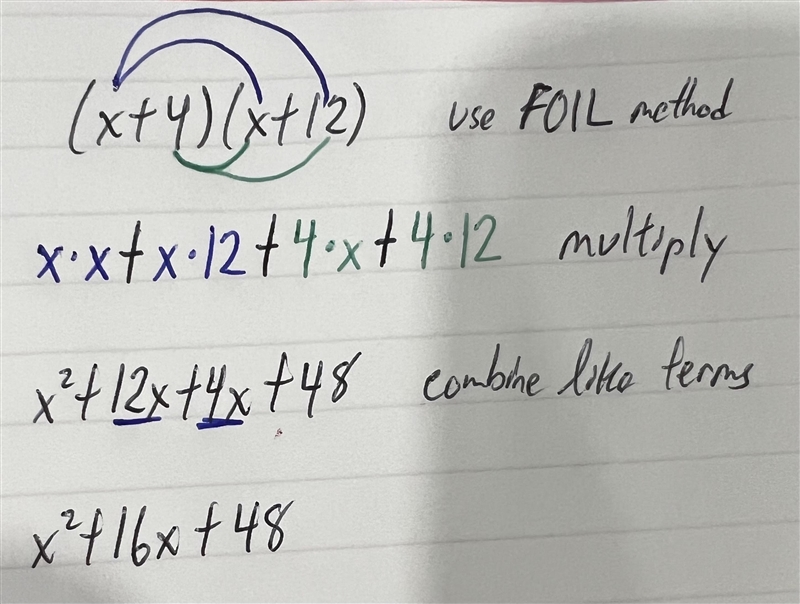 (x+4)(x+12) use FOIL method
x·x+x·12+4·x+4·12 multiply
x²+12x+4x+48 combine like terms
x²+16x+48